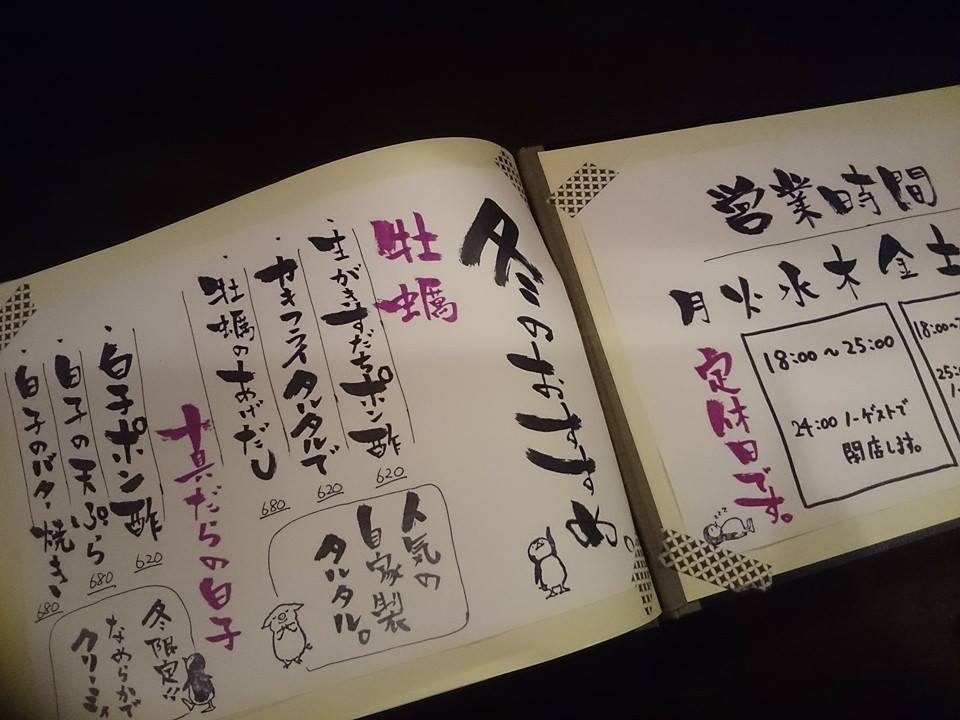 冬のおすすめ。
牡蠣
・生がきすだちポン酢
620
・カキフライタルタルで
620
・牡蠣のあげだし
680
人気の
自家製
タルタル。
真だらの白子
・白子ポン酢
620
・白子の天ぷら
680
・白子のバター焼き
680
冬限定!!
なめらかで
クリーミィ
営業時間
月火水木金土
定休日です。
18:00～25:00
24:00ノーゲストで
閉店します。
18:00～
25:
zzz